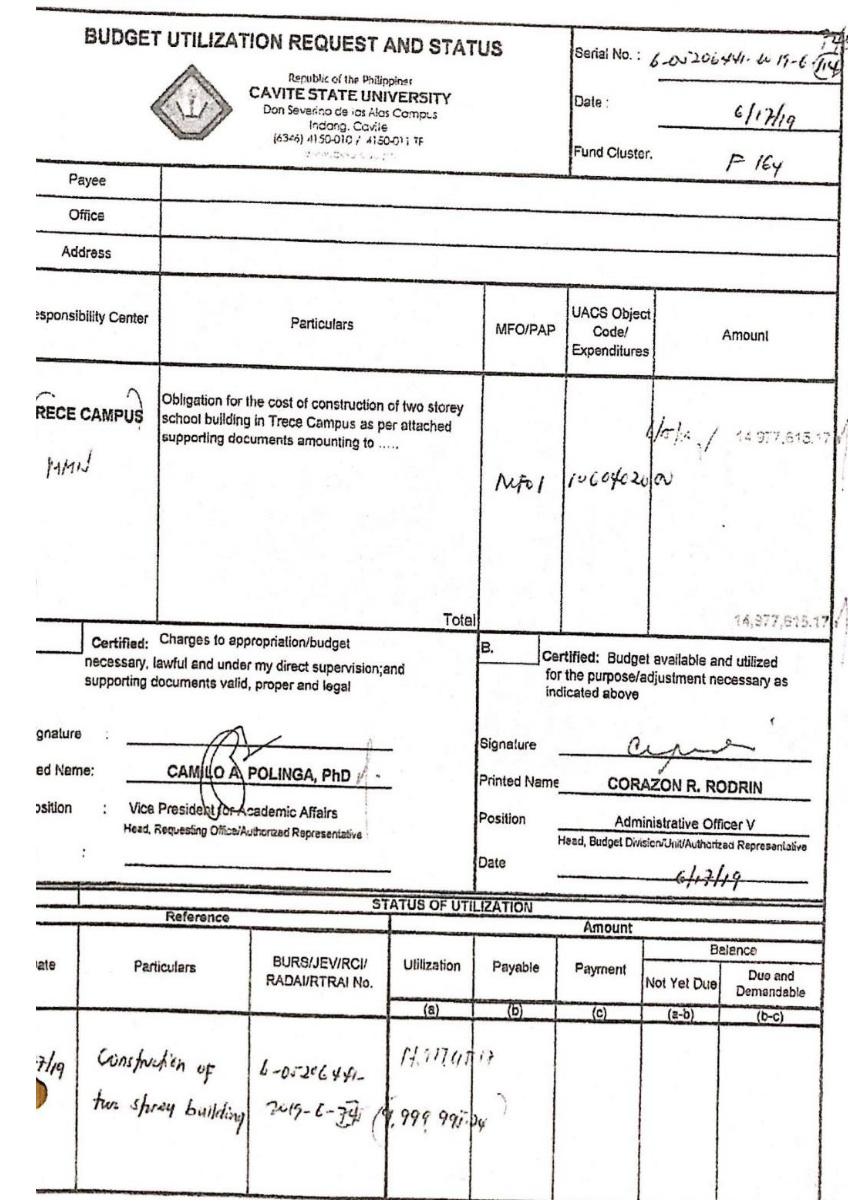 BUDGET UTILIZATION REQUEST AND STATUS
Republic of the Philippines
CAVITE STATE UNIVERSITY
Don Severino de las Alas Campus
Indang, Cavite
(6346) 4150-010 / 4150-011
Serial No. :
Date : 6/17/19
Fund Cluster. F 164
Payee
Office
Address
esponsibility Center Particulars MFO/PAP UACS Object Code/ Expenditures Amount
RECE CAMPUS
Obligation for the cost of construction of two storey
school building in Trece Campus as per attached
supporting documents amounting to .....
14,977,615.17
MFO1
Total 14,977,615.17
Certified: Charges to appropriation/budget
necessary, lawful and under my direct supervision;and
supporting documents valid, proper and legal
gnature :
ed Name: CAMILO A. POLINGA, PhD
osition : Vice President for Academic Affairs
Head, Requesting Office/Authorized Representative
:
B. Certified: Budget available and utilized
for the purpose/adjustment necessary as
indicated above
Signature
Printed Name CORAZON R. RODRIN
Position Administrative Officer V
Head, Budget Division/Unit/Authorized Representative
Date 6/17/19
STATUS OF UTILIZATION
Reference Amount
ate Particulars BURS/JEV/RCI/ RADAI/RTRAI No. Utilization Payable Payment Balance
Not Yet Due Due and Demandable
(a) (b) (c) (a-b) (b-c)
7/19 Construction of
building